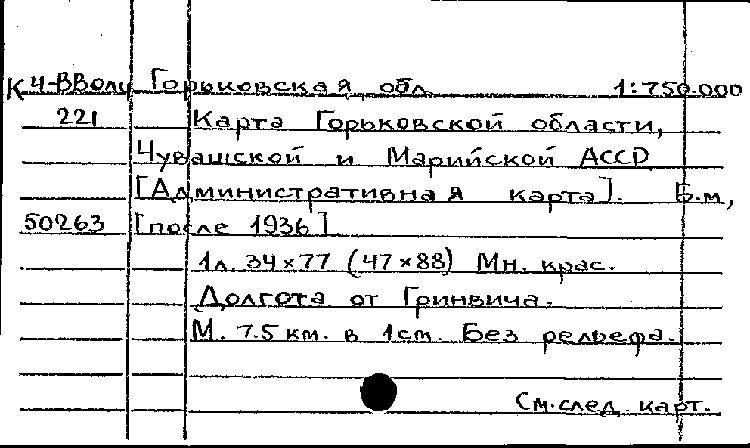 К 4-ВВолц Горьковская обл. 1:750.000
221 Карта Горьковской области,
Чувашской и Марийской АССР
[Административная карта]. Б.м,
50263 [после 1936]
1л. 34×77 (47×88) Мн. крас.
Долгота от Гринвича.
М. 7.5 км. в 1см. Без рельефа.
См.след. карт.